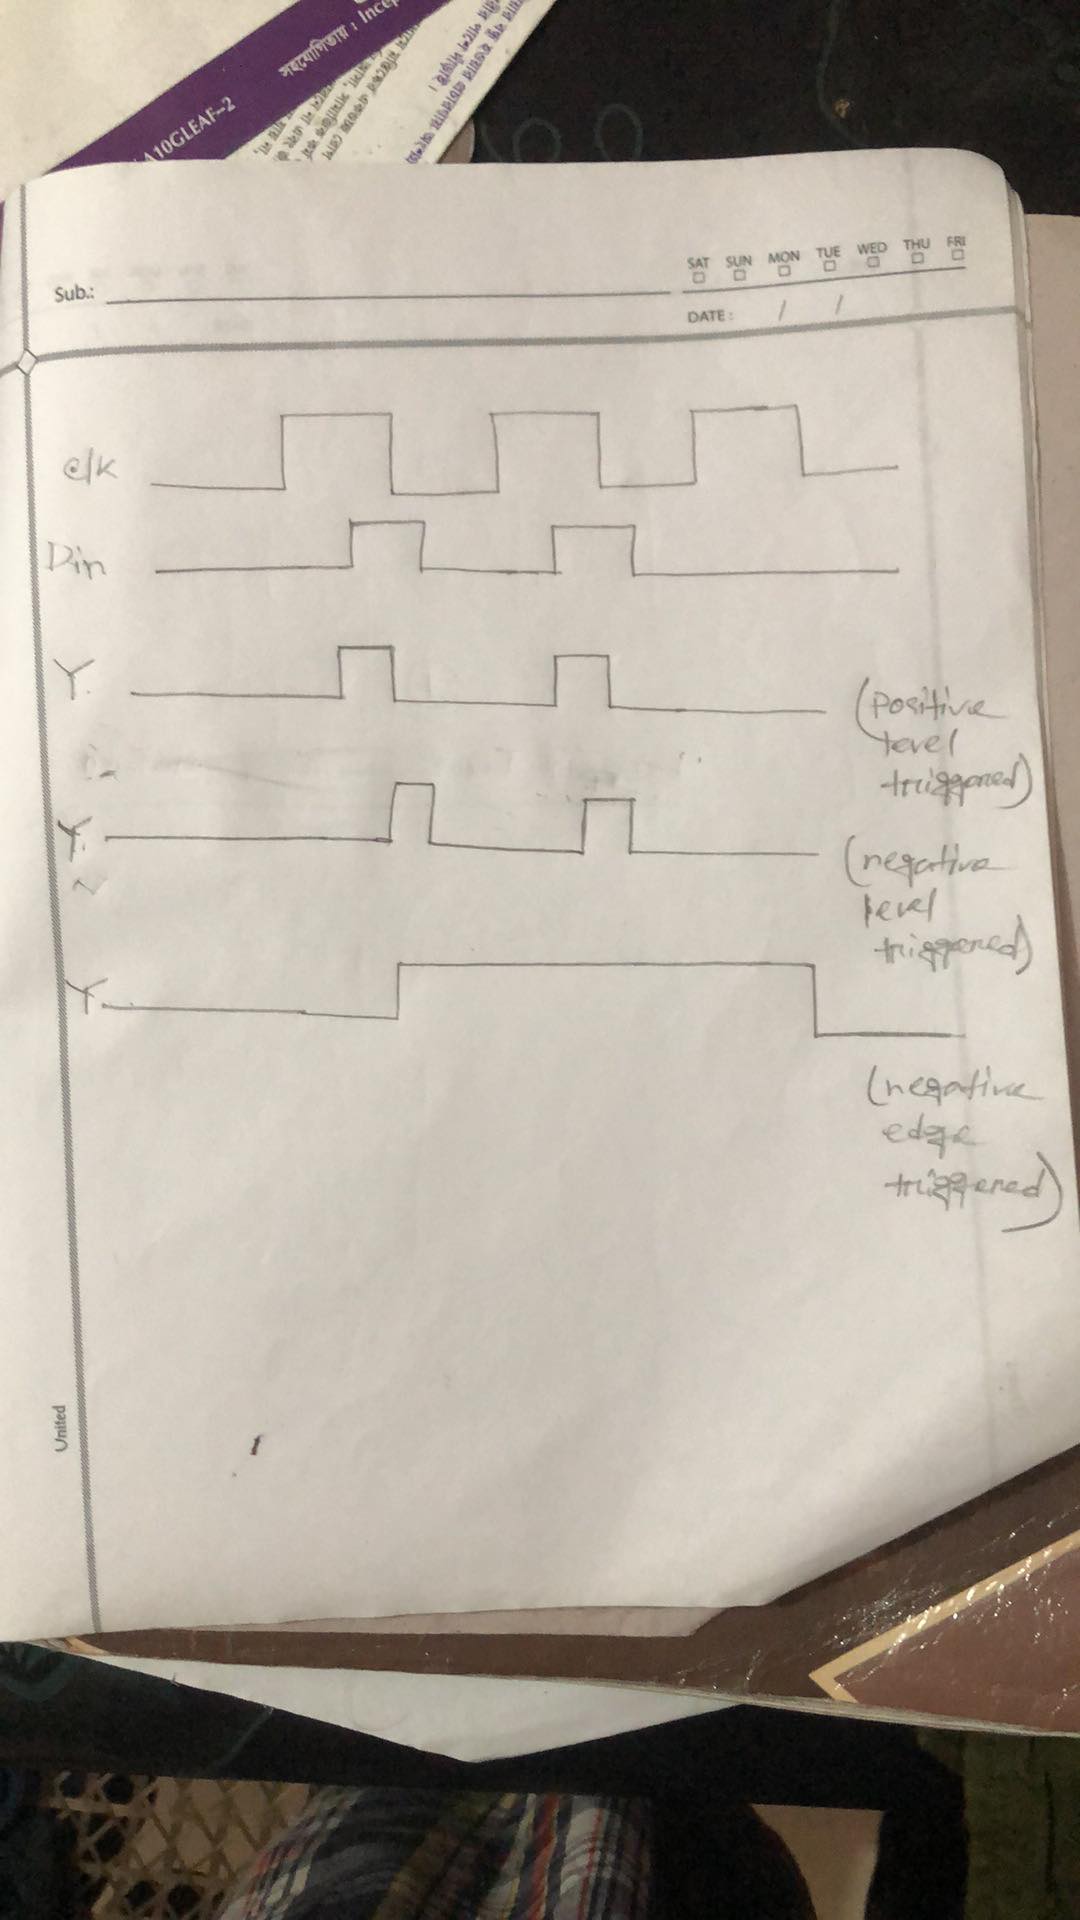 সহযোগিতায় : Incep
A10GLEAF-2
SAT SUN MON TUE WED THU FRI
Sub.:
DATE: / /
clk
Din
Y.
(positive
level
triggered)
Y.
(negative
level
triggered)
Y
(negative
edge
triggered)
United